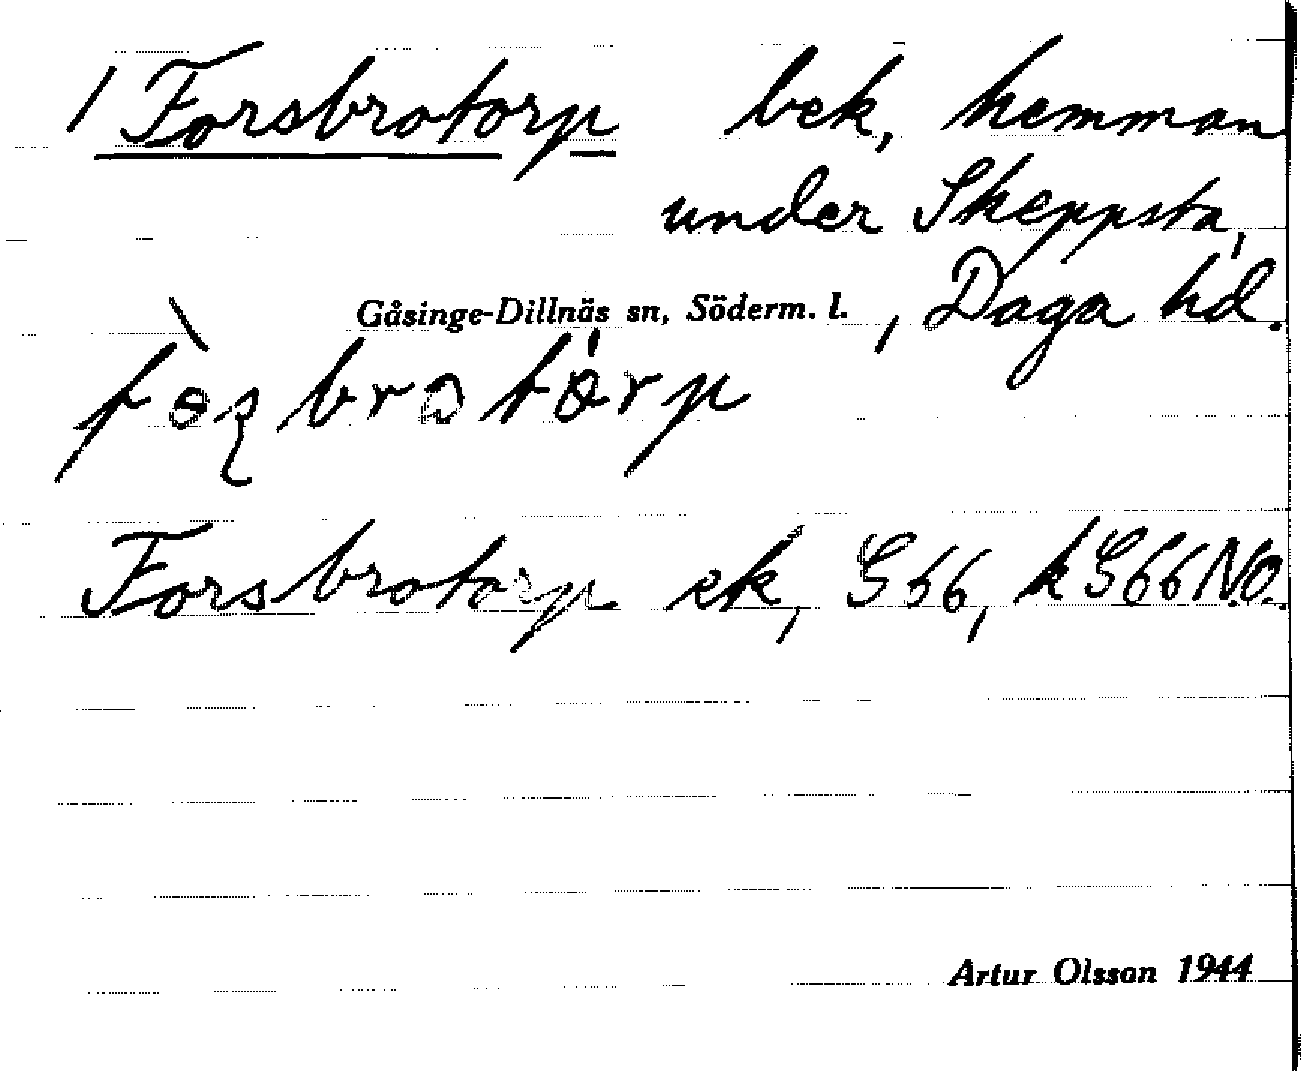 1 Forsbrotorp bek, hemman
under Skeppsta,
Gåsinge-Dillnäs sn, Söderm. l., Daga hd.
Forsbrotorp ek, G66, kG66NO.
Artur Olsson 1944